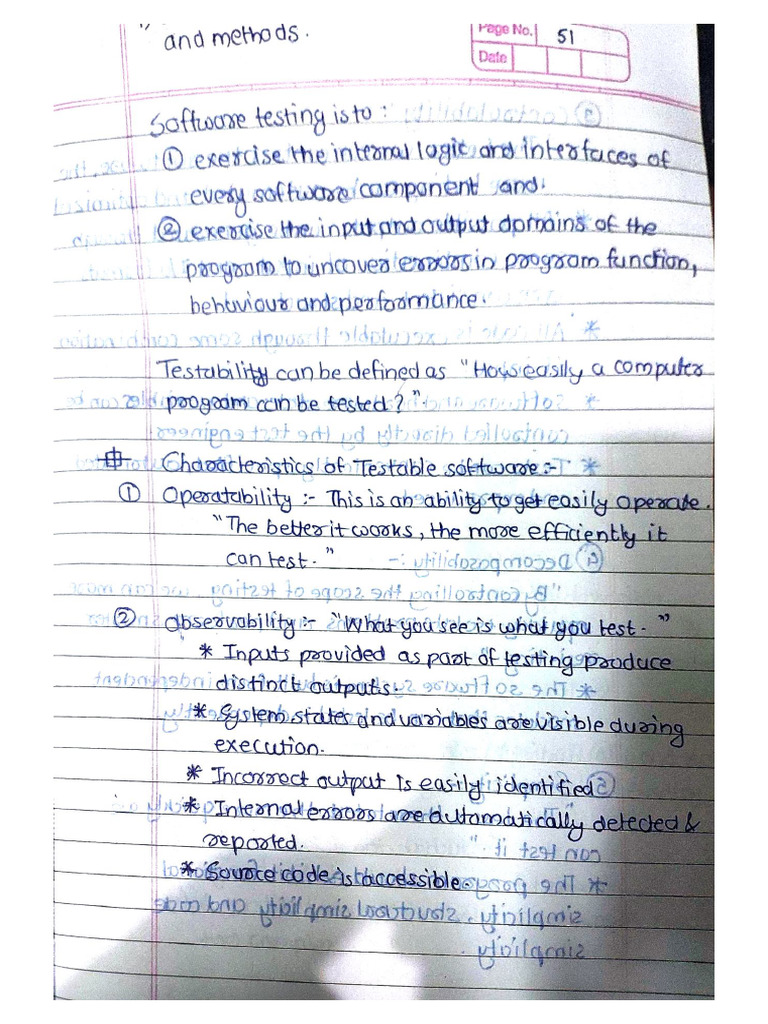 and methods.
Page No. 51
Date
Software testing is to :
① exercise the internal logic and interfaces of
every software component and
② exercise the input and output domains of the
program to uncover errors in program function,
behaviour and performance.
Testability can be defined as "How easily a computer
program can be tested?".
Characteristics of Testable software :-
① Operatability :- This is an ability to get easily operate.
"The better it works, the more efficiently it
can test."
② Observability :- "What you see is what you test."
* Inputs provided as part of testing produce
distinct outputs.
* System states and variables are visible during
execution.
* Incorrect output is easily identified
* Internal errors are automatically detected &
reported.
* Source code is accessible